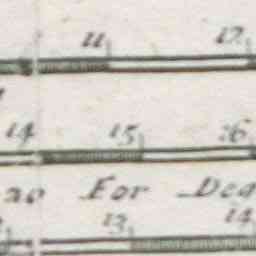 11 12
14 15 16
20 For Deg
13 14